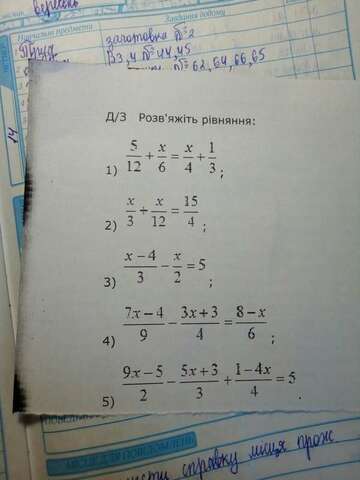 вересень
Навчальні предмети
Завдання додому
Труд
заготовка №2
В3,4 №44,45
№62,64,66,65
14
Д/З Розв'яжіть рівняння:
1) 5/12 + x/6 = x/4 + 1/3 ;
2) x/3 + x/12 = 15/4 ;
3) (x − 4)/3 − x/2 = 5 ;
4) (7x − 4)/9 − (3x + 3)/4 = (8 − x)/6 ;
5) (9x − 5)/2 − (5x + 3)/3 + (1 − 4x)/4 = 5 .
МІСЦЕ ДЛЯ ПОВІДОМЛЕНЬ
справку місця прож